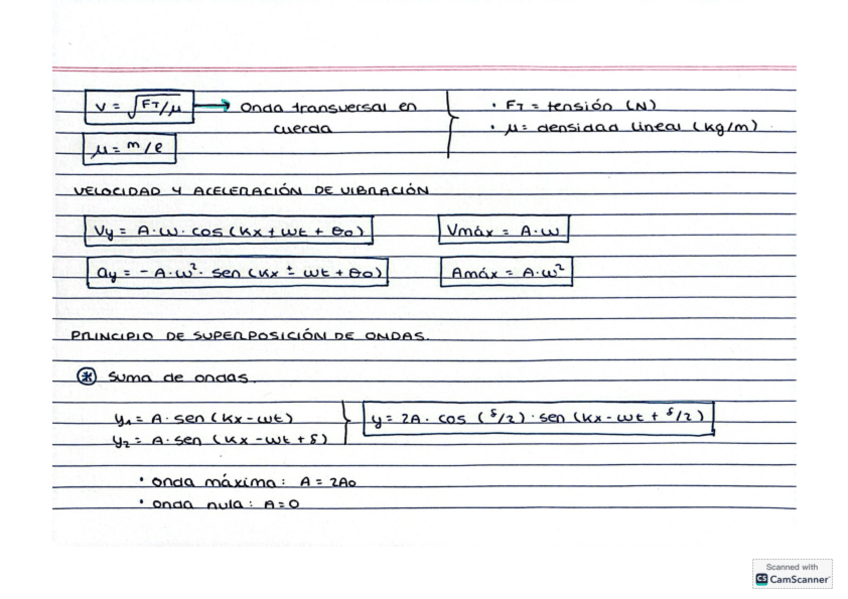 V = √FT/μ → Onda transversal en cuerda
• FT = tensión (N)
• μ = densidad lineal (kg/m)
μ = m/e
VELOCIDAD Y ACELERACIÓN DE VIBRACIÓN
Vy = A·ω·cos(Kx + ωt + θ0)
Vmáx = A·ω
ay = -A·ω²·sen(Kx ± ωt + θ0)
Amáx = A·ω²
PRINCIPIO DE SUPERPOSICIÓN DE ONDAS.
* Suma de ondas.
y1 = A·sen(Kx-ωt)
y2 = A·sen(Kx-ωt+δ)
y = 2A·cos(δ/2)·sen(Kx-ωt+δ/2)
• onda máxima: A = 2A0
• onda nula: A = 0
Scanned with
CS CamScanner